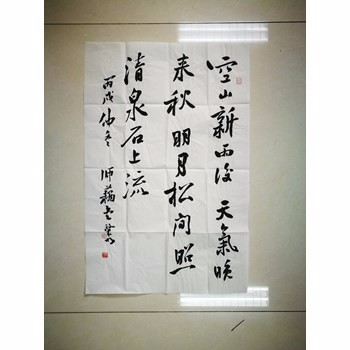 空山新雨後天氣晚
来秋明月松间照
清泉石上流
丙戌仲冬